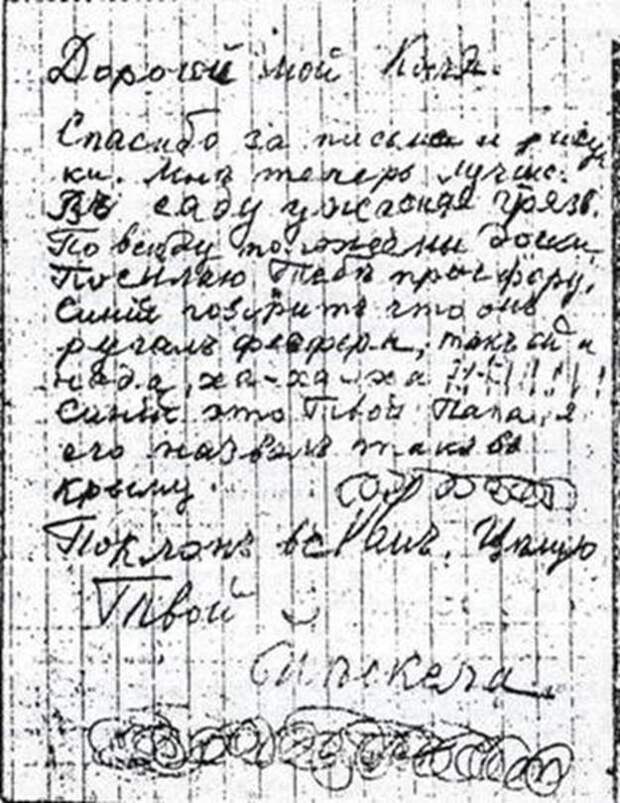 Дорогой мой Коля.
Спасибо за письма и рисун
ки. Мнѣ теперь лучше.
Въ саду ужасная грязь.
Повсюду положены доски.
Посылаю Тебѣ просфору.
Синій говоритъ что онъ
ругалъ
надо, ха-ха-ха !!!!!!!!
Синій это Твой Папа, я
его назвалъ такъ въ
Крыму.
Поклонъ всѣмъ. Цѣлую
Твой